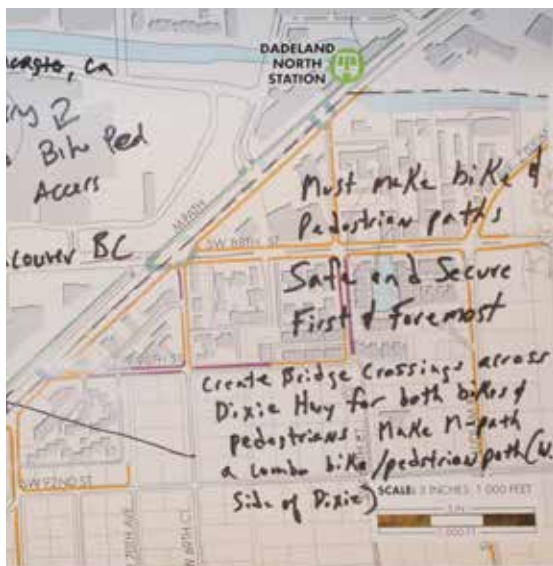 DADELAND
NORTH
STATION
, Ca
Bike Ped
Access
MPATH
BC
SW 88TH ST
Must make bike &
Pedestrian paths
Safe and Secure
First & Foremost
Create Bridge Crossings across
Dixie Hwy for both bikes &
pedestrians Make M-path
a combo bike/pedstrian path (W.
Side of Dixie)
SW 92ND ST
SW 70TH AVE
SW 69TH CT
SCALE: 3 INCHES: 1 000 FEET
3 IN
1 000 FT